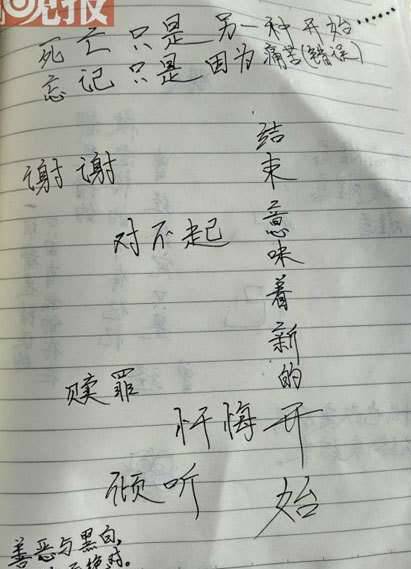 晚报
死亡只是另一种开始……
忘记只是因为痛苦(错误)
谢谢
对不起
结束意味着新的开始
赎罪
忏悔
倾听
善恶与黑白,
绝对。